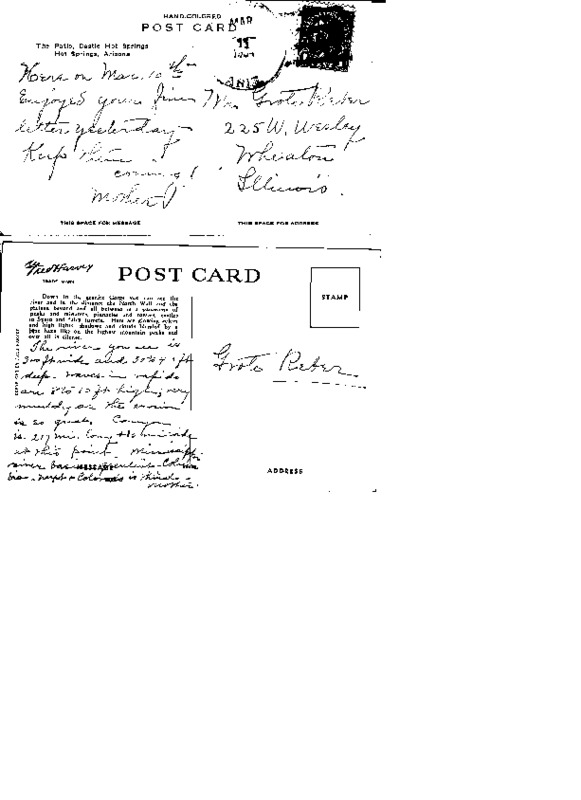 HAND-COLORED
POST CARD
MAR
11
ARIZ
The Patio, Castle Hot Springs
Hot Springs, Arizona
Here on Mar. 10th
Enjoyed your fine
letter yesterday
Keep them
coming!
Mother
Mr. Grote Reber
225 W. Wesley
Wheaton
Illinois.
THIS SPACE FOR MESSAGE
THIS SPACE FOR ADDRESS
Fred Harvey
TRADE MARK
POST CARD
STAMP
Down in the granite Gorge you can see the
river and in the distance the North Wall and the
plateau beyond and all between is a panorama of
peaks and
and high lights, shadows and clouds blended by a
blue haze like on the highest mountain peaks and
over all is silence.
The river you see is
300 ft wide and 30 to 40 ft
deep. Waves in rapids
are 8 to 10 ft high; very
muddy as the erosion
is so great. Canyon
is 217 mi. long + 13 mi wide
at this point. Mississippi
river
next + Colorado is third
Mother.
Grote Reber
ADDRESS